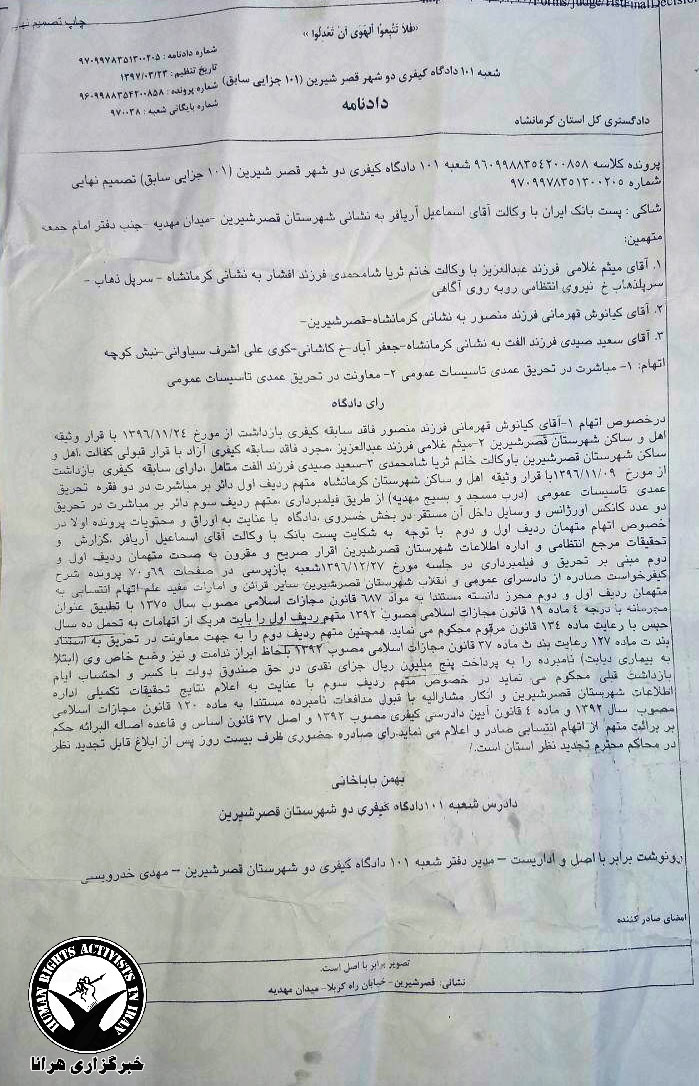 /Forms/Judge/HstFinalDecision
چاپ تصمیم نهایی
«فَلاَ تَتَّبِعواْ اَلهَوی اَنْ تَعدِلُوا»
شعبه ۱۰۱ دادگاه کیفری دو شهر قصر شیرین (۱۰۱ جزایی سابق)
دادنامه
شماره دادنامه : ۹۷۰۹۹۷۸۳۵۱۳۰۰۲۰۵
تاریخ تنظیم : ۱۳۹۷/۰۳/۲۳
شماره پرونده : ۹۶۰۹۹۸۸۳۵۴۲۰۰۸۵۸
شماره بایگانی شعبه : ۹۷۰۰۳۸
دادگستری کل استان کرمانشاه
پرونده کلاسه ۹۶۰۹۹۸۸۳۵۴۲۰۰۸۵۸ شعبه ۱۰۱ دادگاه کیفری دو شهر قصر شیرین (۱۰۱ جزایی سابق) تصمیم نهایی
شماره ۹۷۰۹۹۷۸۳۵۱۳۰۰۲۰۵
شاکی : پست بانک ایران با وکالت آقای اسماعیل آریافر به نشانی شهرستان قصرشیرین -میدان مهدیه -جنب دفتر امام جمعه
متهمین:
۱. آقای میثم غلامی فرزند عبدالعزیز با وکالت خانم ثریا شامحمدی فرزند افشار به نشانی کرمانشاه - سرپل ذهاب -
سرپلذهاب خ نیروی انتظامی روبه روی آگاهی
۲. آقای کیانوش قهرمانی فرزند منصور به نشانی کرمانشاه-قصرشیرین-
۳. آقای سعید صیدی فرزند الفت به نشانی کرمانشاه-جعفر آباد-خ کاشانی-کوی علی اشرف سیاوانی-نبش کوچه
اتهام: ۱- مباشرت در تحریق عمدی تاسیسات عمومی ۲- معاونت در تحریق عمدی تاسیسات عمومی
رای دادگاه
درخصوص اتهام ۱-آقای کیانوش قهرمانی فرزند منصور فاقد سابقه کیفری بازداشت از مورخ ۱۳۹۶/۱۱/۲۴ با قرار وثیقه
اهل و ساکن شهرستان قصرشیرین ۲-میثم غلامی فرزند عبدالعزیز ،مجرد فاقد سابقه کیفری آزاد با قرار قبولی کفالت ،اهل و
ساکن شهرستان قصرشیرین باوکالت خانم ثریا شامحمدی ۳-سعید صیدی فرزند الفت متاهل ،دارای سابقه کیفری بازداشت
از مورخ ۱۳۹۶/۱۱/۰۹با قرار وثیقه اهل و ساکن شهرستان کرمانشاه متهم ردیف اول دائر بر مباشرت در دو فقره تحریق
عمدی تاسیسات عمومی (درب مسجد و بسیج مهدیه) از طریق فیلمبرداری ،متهم ردیف سوم دائر بر مباشرت در تحریق
دو عدد کانکس اورژانس و وسایل داخل آن مستقر در بخش خسروی ،دادگاه با عنایت به اوراق و محتویات پرونده اولا در
خصوص اتهام متهمان ردیف اول و دوم با توجه به شکایت پست بانک با وکالت آقای اسماعیل آریافر ،گزارش و
تحقیقات مرجع انتظامی و اداره اطلاعات شهرستان قصرشیرین اقرار صریح و مقرون به صحت متهمان ردیف اول و
دوم مبنی بر تحریق و فیلمبرداری در جلسه مورخ ۱۳۹۶/۱۲/۲۷شعبه بازپرسی در صفحات ۶۹و۷۰ پرونده شرح
کیفرخواست صادره از دادسرای عمومی و انقلاب شهرستان قصرشیرین سایر قرائن و امارات مفید علم-اتهام انتسابی به
متهمان ردیف اول و دوم محرز دانسته مستندا به مواد ۶۸۷ قانون مجازات اسلامی مصوب سال ۱۳۷۵ با تطبیق عنوان
مجرمانه با درجه ۴ ماده ۱۹ قانون مجازات اسلامی مصوب ۱۳۹۲ متهم ردیف اول را بابت هریک از اتهامات به تحمل ده سال
حبس با رعایت ماده ۱۳۴ قانون مرقوم محکوم می نماید. همچنین متهم ردیف دوم را به جهت معاونت در تحریق به استناد
بند ت ماده ۱۲۷ رعایت بند ث ماده ۳۷ قانون مجازات اسلامی مصوب ۱۳۹۲ بلحاظ ابراز ندامت و نیز وضع خاص وی (ابتلا
به بیماری دیابت) نامبرده را به پرداخت پنج میلیون ریال جزای نقدی در حق صندوق دولت با کسر و احتساب ایام
بازداشت قبلی محکوم می نماید در خصوص متهم ردیف سوم با عنایت به اعلام نتایج تحقیقات تکمیلی اداره
اطلاعات شهرستان قصرشیرین و انکار مشارالیه با قبول مدافعات نامبرده مستندا به ماده ۱۲۰ قانون مجازات اسلامی
مصوب سال ۱۳۹۲ و ماده ۴ قانون آیین دادرسی کیفری مصوب ۱۳۹۲ و اصل ۳۷ قانون اساس و قاعده اصاله البرائه حکم
بر برائت متهم از اتهام انتسابی صادر و اعلام می نماید.رای صادره حضوری ظرف بیست روز پس از ابلاغ قابل تجدید نظر
در محاکم محترم تجدید نظر استان است./
بهمن باباخانی
دادرس شعبه ۱۰۱دادگاه کیفری دو شهرستان قصرشیرین
رونوشت برابر با اصل و اداریست - مدیر دفتر شعبه ۱۰۱ دادگاه کیفری دو شهرستان قصرشیرین - مهدی خدرویسی
امضای صادر کننده
تصویر برابر با اصل است.
نشانی: قصرشیرین-خیابان راه کربلا- میدان مهدیه
HUMAN RIGHTS ACTIVISTS IN IRAN
خبرگزاری هرانا